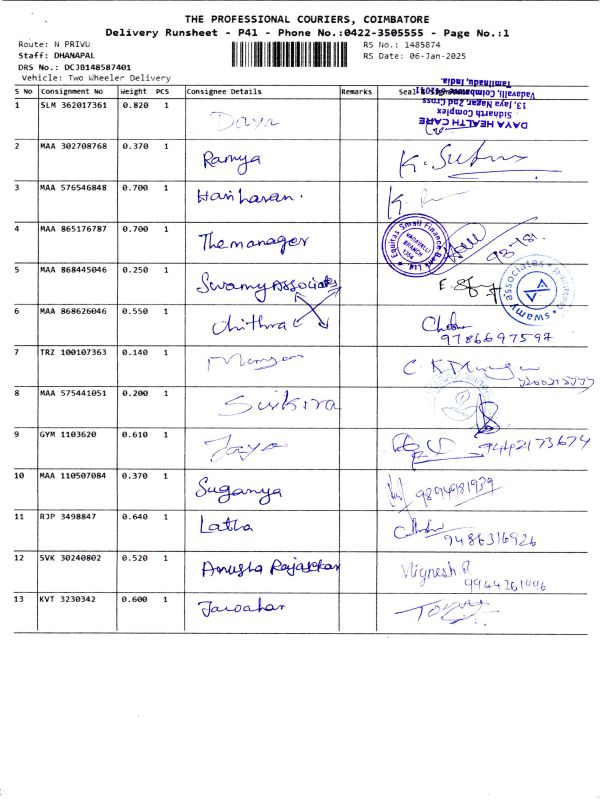 THE PROFESSIONAL COURIERS, COIMBATORE
Delivery Runsheet - P41 - Phone No.:0422-3505555 - Page No.:1
Route: N PRIVU
RS No.: 1485874
Staff: DHANAPAL
RS Date: 06-Jan-2025
DRS No.: DCJB148587401
Vehicle: Two Wheeler Delivery
S No Consignment No Weight PCS Consignee Details Remarks Seal
DAYA HEALTH CARE
Sidharth Complex
13, Jaya Nagar, 2nd Cross
Vadavalli, Coimbatore 641041
Tamilnadu, India.
1 SLM 362017361 0.820 1 Daya
2 MAA 302708768 0.370 1 Ramya
3 MAA 576546848 0.700 1 Hariharan.
4 MAA 865176787 0.700 1 The manager
Equitas Small Finance Bank Ltd
VADAVALLI
BRANCH
5 MAA 868445046 0.250 1 Swamy Associates
swamy associates
6 MAA 868626046 0.550 1 Chithra C
9786697597
7 TRZ 100107363 0.140 1 Murugan
8 MAA 575441051 0.200 1
9 GYM 1103620 0.610 1 Jaya 9442173674
10 MAA 110507084 0.370 1 Suganya 9894981939
11 RJP 3498847 0.640 1 Latha
9486316926
12 SVK 30240802 0.520 1 Anusha Rajasekar Vignesh R
13 KVT 3230342 0.600 1 Jawahar